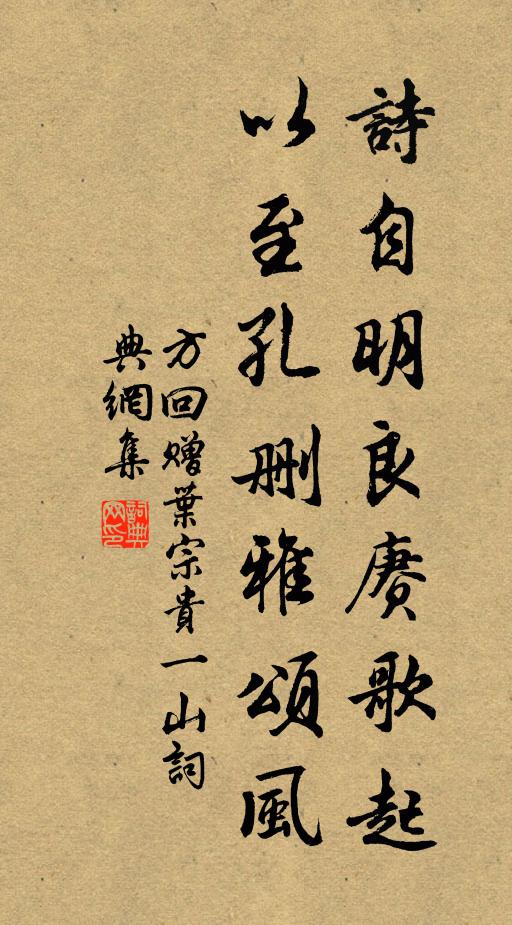 詩自明良賡歌起
以至孔刪雅頌風
方回贈葉宗貴一山詞
典網集
詞典網印